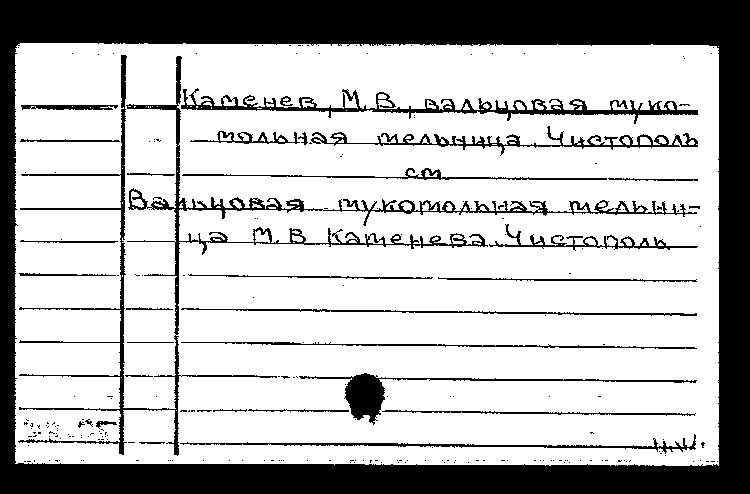 Каменев, М.В., вальцовая муко-
мольная мельница. Чистополь
см.
Вальцовая мукомольная мельни-
ца М.В. Каменева. Чистополь.